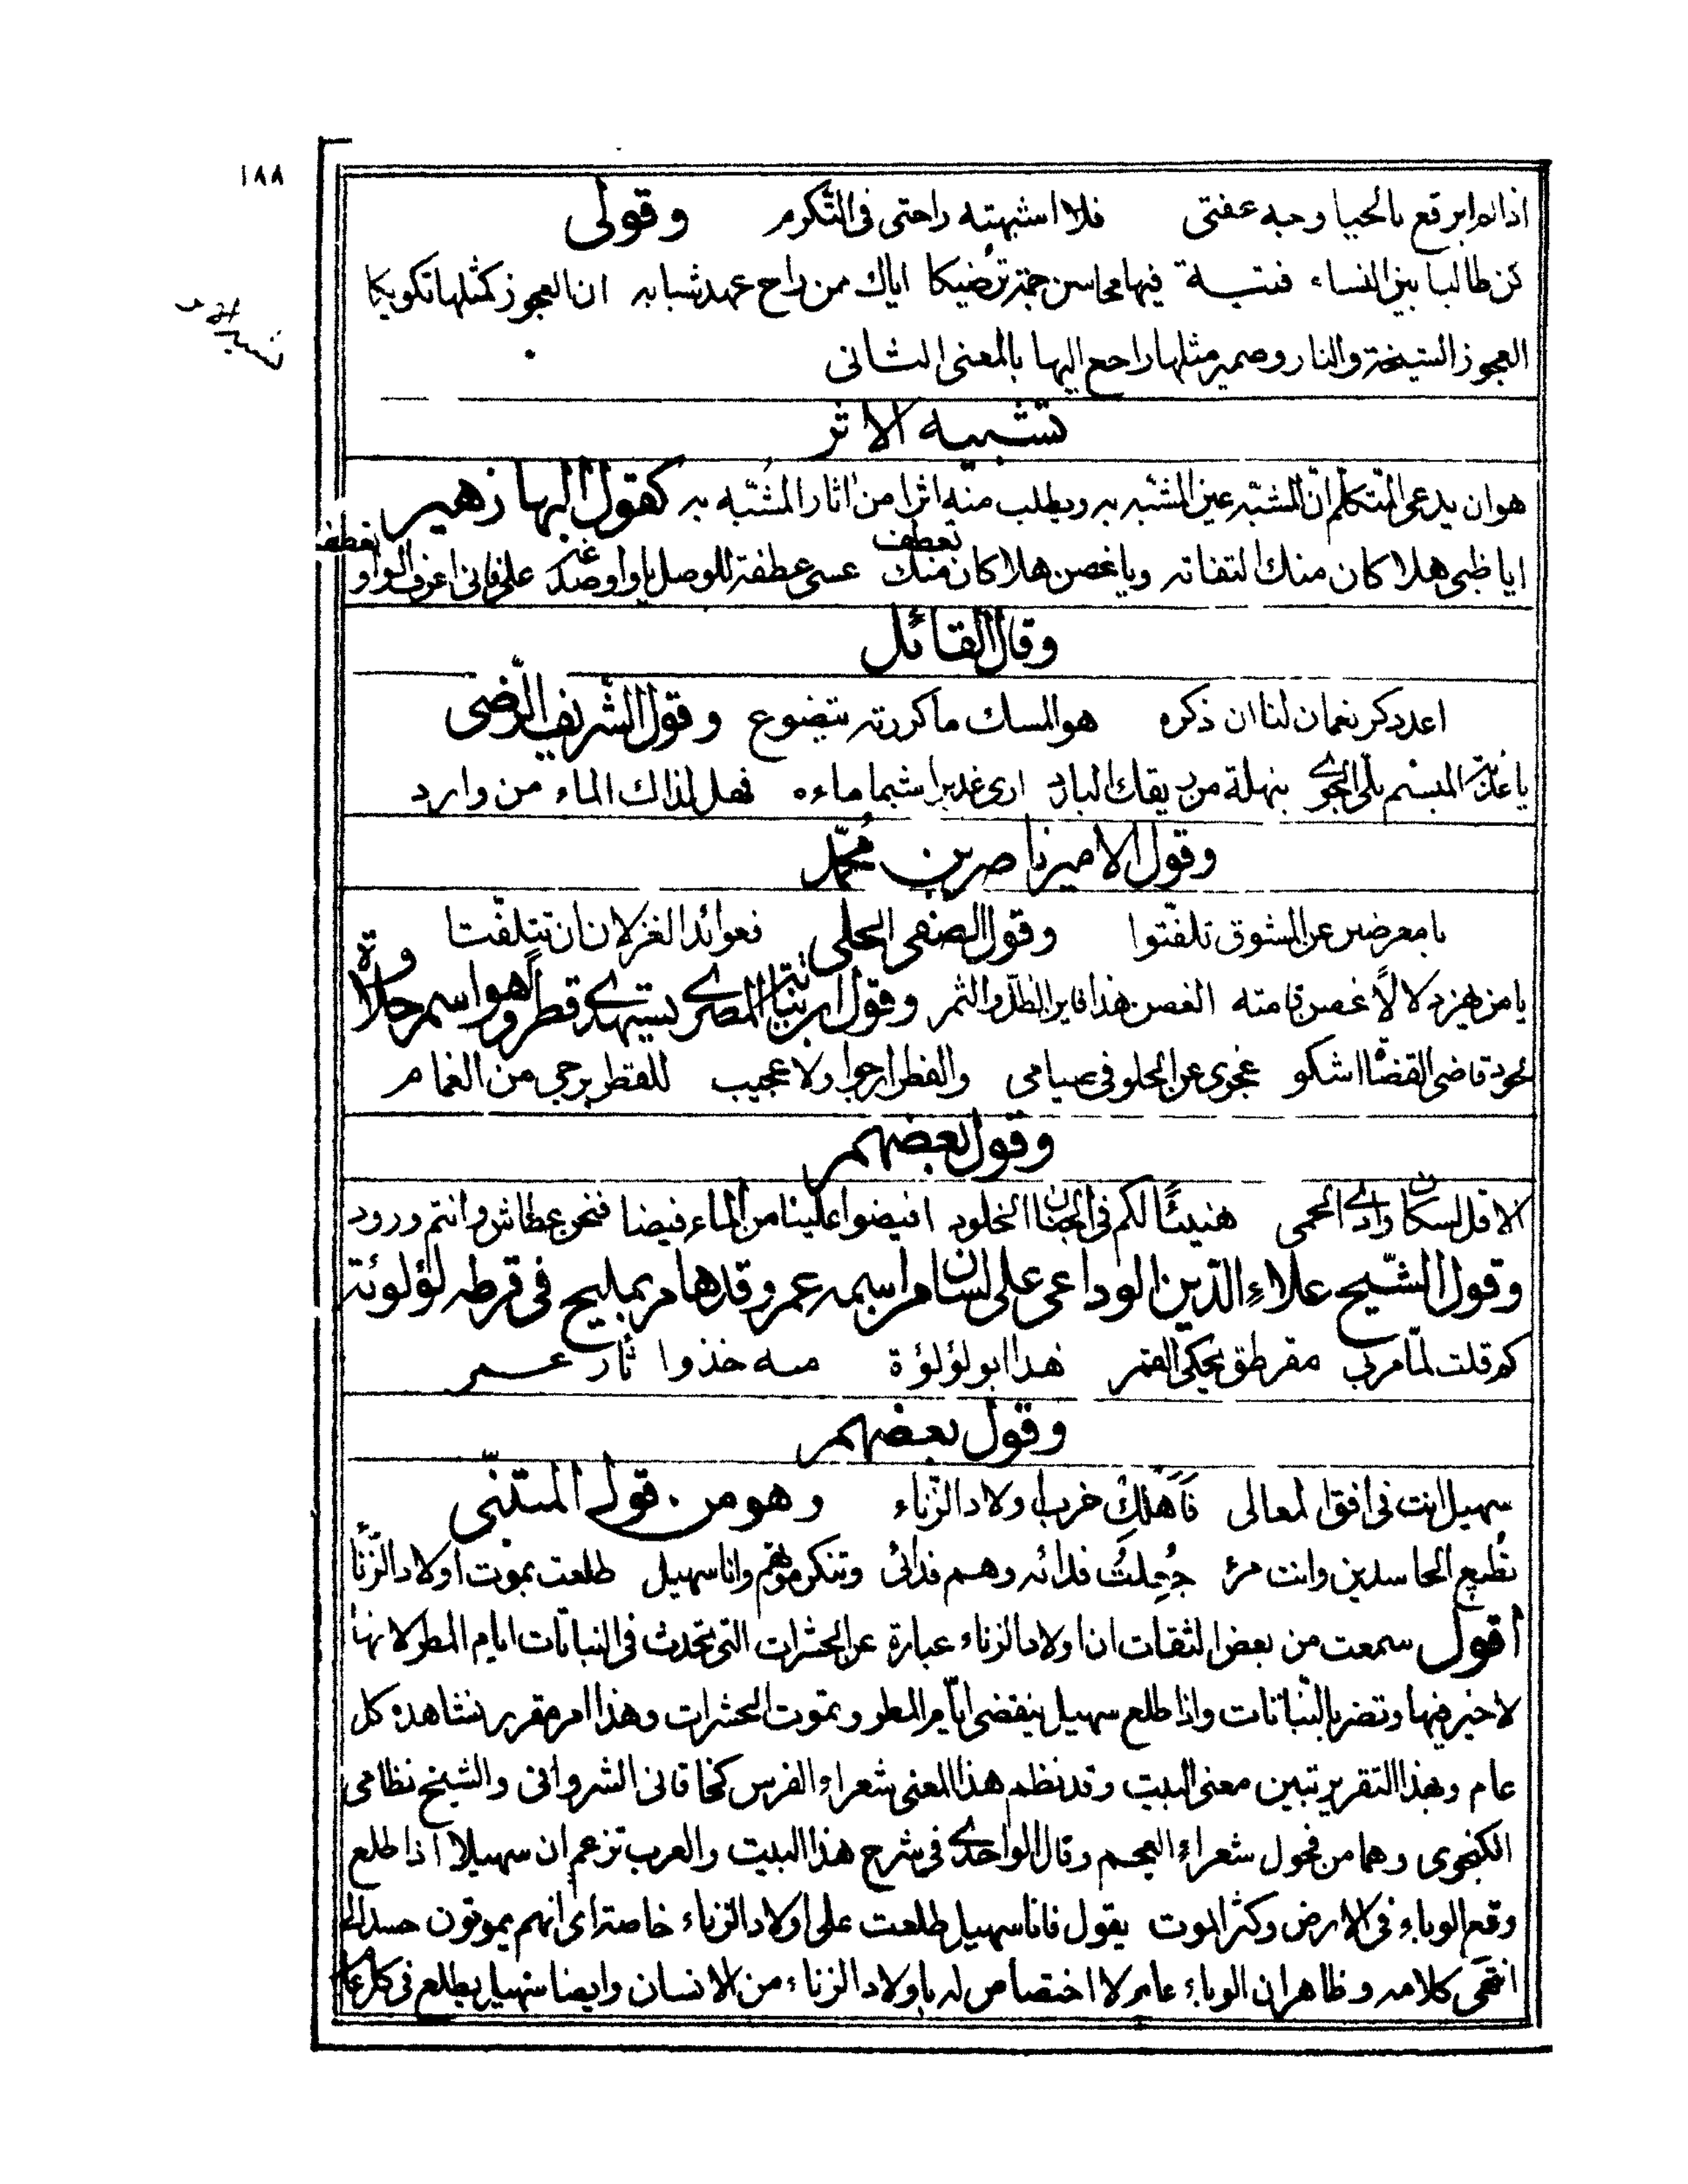 ١٨٨
اذا انا لم ابرقع بالحيا وجه عفتي فلا اشبهته راحتي في التكرم وقولي
كن طالبا بين النساء فتية فيها محاسن جمة ترضيكا اياك ممن راح عهد شبابه ان العجوز كمثلها تكويكا
العجوز الشيخة والنار وضمير مثلها راجع اليها بالمعنى الثاني
تشبيه الاثر
هو ان يدعى المتكلم ان المشبه عين المشبه به ويطلب منه اثرا من اثار المشبه به كقول البها زهير
ايا ظبي هلا كان منك التفاته ويا غصن هلا كان منك تعطف عسى عطفة للوصل يا واو صدغه علي فاني اعرف الواو تعطف
وقال القائل
اعد ذكر نعمان لنا ان ذكره هو المسك ما كررته يتضوع وقول الشريف الرضي
يا عذبة المبسم بلي الجوى بنهلة من ريقك البارد ارى غديرا شبما ماءه فهل لذاك الماء من وارد
وقول الامير ناصر بن محمد
يا معرضين عن المشوق تلفتوا فعوائد الغزلان ان تتلفتا وقول الصفي الحلي
يا من يهز دلالا غصن قامته الغصن هذا فاين الظل والثمر وقول ابن نباتة المصري يستهدي قطرا وهو اسم حلاوة
لجود قاضي القضاة اشكو عجزي عن الحلو في صيامي والقطر ارجو ولا عجيب للقطر يرجى من الغمام
وقول بعضهم
الا قل لسكان وادي الحمى هنيئا لكم في الجنان الخلود افيضوا علينا من الماء فيضا فنحن عطاش وانتم ورود
وقول الشيخ علاء الدين الوداعي على لسان امر اسمه عمر وقد هام بمليح في قرطه لؤلؤة
كم قلت لما مر بي مقرطق يحكي القمر هذا ابو لؤلؤة منه خذوا ثار عمر
وقول بعضهم
سهيل انت في افق المعالي فاهلك ضرب اولاد الزناء وهو من قول المتنبي
تطيع الحاسدين وانت مرء جعلت فدائه وهم فدائي وتنكر موتهم وانا سهيل طلعت بموت اولاد الزناء
اقول سمعت من بعض الثقات ان اولاد الزناء عبارة عن الحشرات التي تحدث في النباتات ايام المطر لانها
لا خير فيها وتضر بالنباتات واذا طلع سهيل ينقضي ايام المطر وتموت الحشرات وهذا امر مقرر نشاهده كل
عام وبهذا التقرير تبين معنى البيت وقد نظم هذا المعنى شعراء الفرس كخاقاني الشرواني والشيخ نظامي
الكنجوي وهما من فحول شعراء العجم وقال الواحدي في شرح هذا البيت والعرب تزعم ان سهيلا اذا طلع
وقع الوباء في الارض وكثر الموت يقول فانا سهيل طلعت على اولاد الزناء خاصة اي انهم يموتون حسدا لي
انتهى كلامه وظاهر ان الوباء عام لا اختصاص له باولاد الزناء من الانسان وايضا سهيل يطلع في كل عام